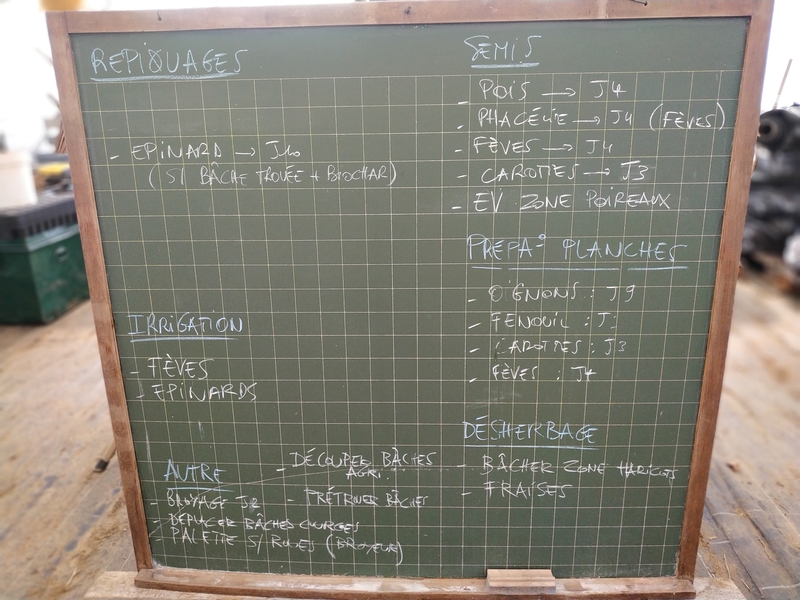 REPIQUAGES
- EPINARD → J10
(S/ BÂCHE TROUÉE + BROCHAR)
IRRIGATION
- FÈVES
- EPINARDS
AUTRE
- BROYAGE J2
- DÉPLACER BÂCHES COURGES
- PALETTE S/ ROUES (BROYEUR)
- DÉCOUPER BÂCHES
AGRI.
BÂCHES
SEMIS
- POIS → J4
- PHACÉLIE → J4 (FÈVES)
- FÈVES → J4
- CAROTTES → J3
- EV ZONE POIREAUX
PRÉPA° PLANCHES
- OIGNONS : J9
- FENOUIL :
- CAROTTES : J3
- FÈVES : J4
DÉSHERBAGE
- BÂCHER ZONE HARICOTS
- FRAISES